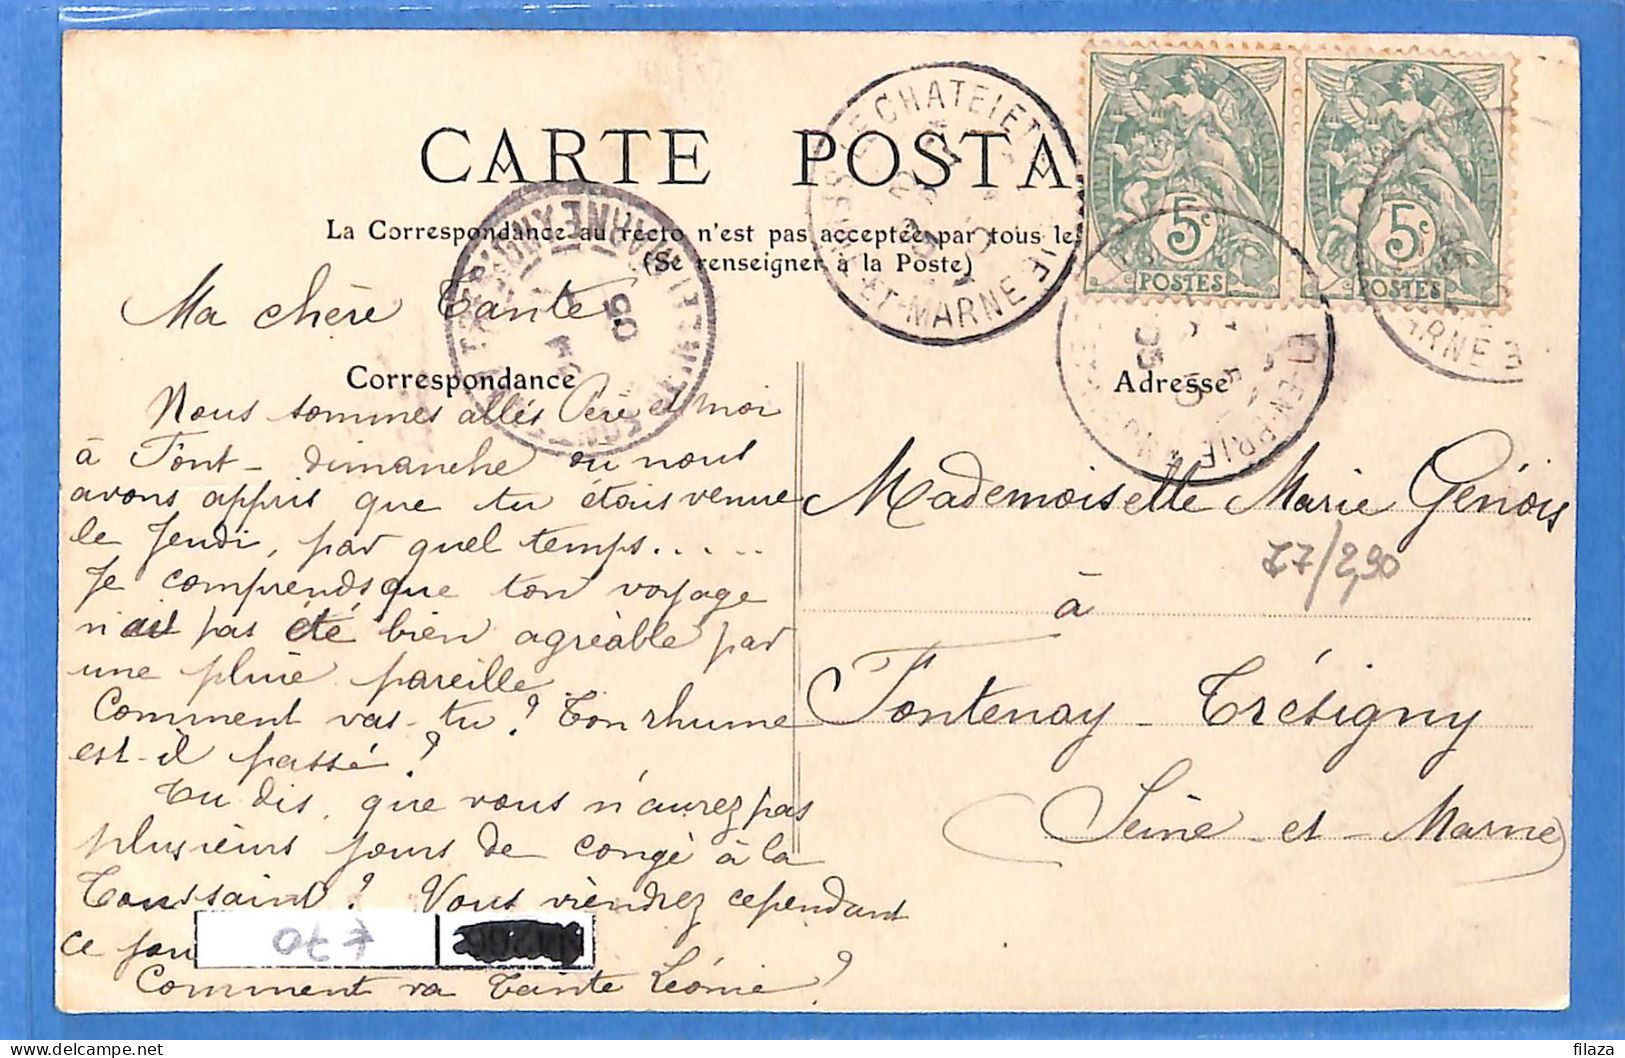 CARTE POSTA
La Correspondance au recto n'est pas acceptée par tous le
(Se renseigner à la Poste)
Ma chère Tante
Correspondance
Nous sommes allés Père et moi
à Font- dimanche où nous
avons appris que tu étais venue
le Jeudi, par quel temps.....
Je comprends que ton voyage
n'ait pas été bien agréable par
une pluie pareille.
Comment vas-tu? Ton rhume
est-il passé?
Tu dis, que vous n'aurez pas
plusieurs jours de congé à la
Toussaint? Vous viendrez cependant
ce jou
Comment va Tante Léonie?
Adresse
Mademoiselle Marie Génois
77/2,90
à
Fontenay-Trésigny
Seine-et-Marne
LE CHATELET-EN-BRIE
ET-MARNE
5c
POSTES
5c
POSTES
05
05
filaza